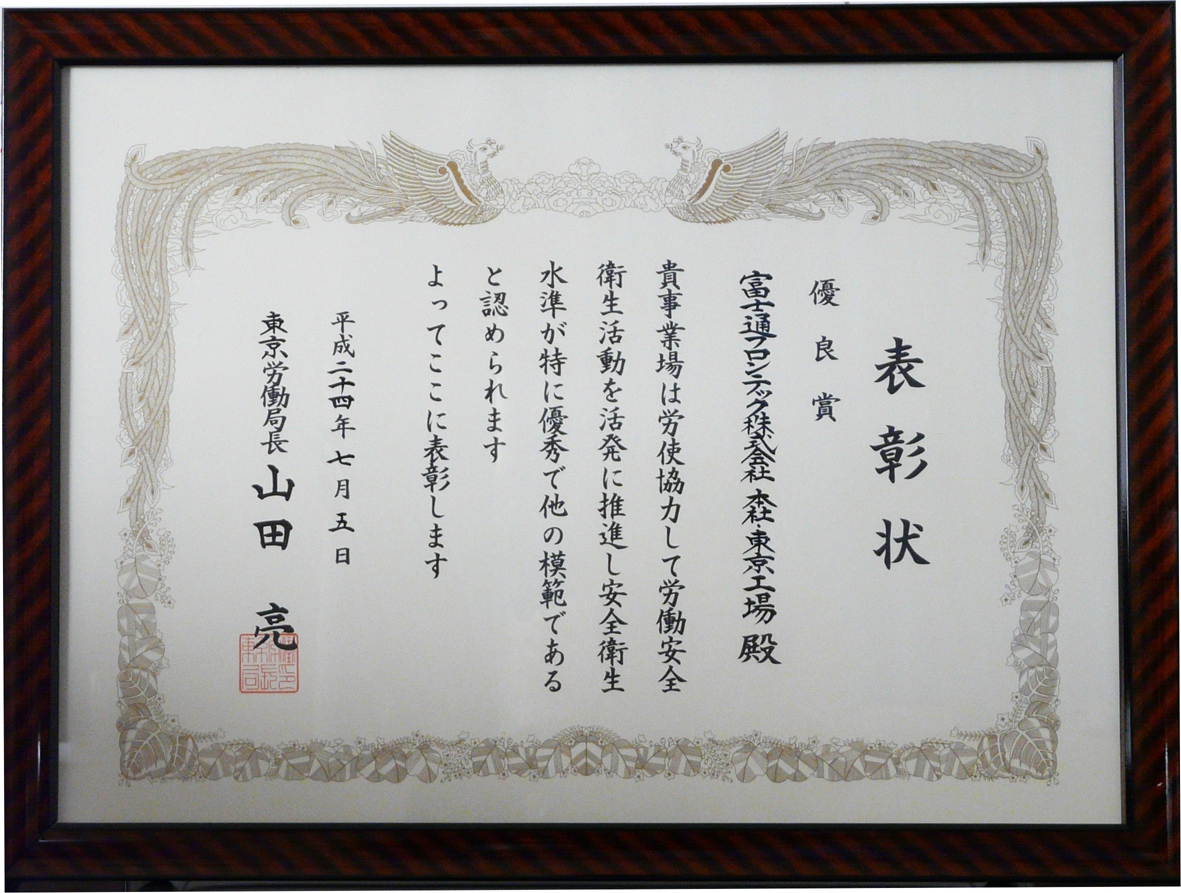 表彰状
優良賞
富士通フロンテック株式会社 本社・東京工場 殿
貴事業場は労使協力して労働安全
衛生活動を活発に推進し安全衛生
水準が特に優秀で他の模範である
と認められます
よってここに表彰します
平成二十四年七月五日
東京労働局長 山田 亮